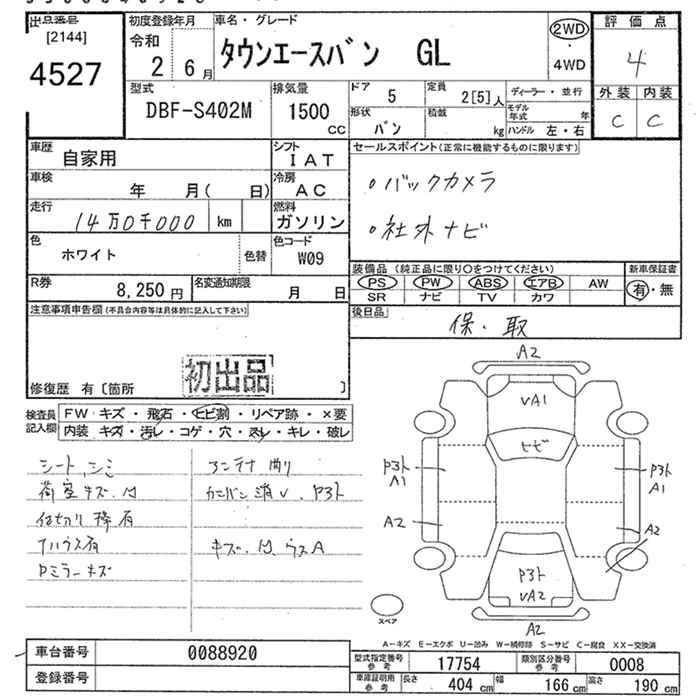 出品番号
[2144]
4527
初度登録年月
令和
2 6月
車名・グレード
タウンエースバン GL
2WD
・
4WD
評価点
4
外装 内装
C C
型式
DBF-S402M
排気量
1500
CC
ドア
5
定員
2[5]人
ディーラー・並行
モデル年式 年
形状
バン
積載
kg
ハンドル 左・右
車歴
自家用
シフト
IAT
車検
年 月( 日)
冷房
AC
走行
14万0千000 km
燃料
ガソリン
色
ホワイト
色替
色コード
W09
R券
8,250円
名変通知期限
月 日
セールスポイント(正常に機能するものに限ります)
・バックカメラ
・社外ナビ
装備品(純正品に限り○をつけてください)
PS PW ABS エアB AW
SR ナビ TV カワ
新車保証書
有・無
後日品
保・取
注意事項申告欄(不具合内容等は具体的に記入して下さい)
初出品
修復歴 有〔箇所 〕
検査員記入欄
FW キズ・飛石・ヒビ割・リペア跡・×要
内装 キズ・汚レ・コゲ・穴・スレ・キレ・破レ
シート シミ
荷室キズ.凹
仕切り棒有
Pミラーキズ
アンテナ曲り
カンバン消し、Pヨト
キズ.凹.ウスA
A2
VA1
ヒビ
Pヨト
A1
Pヨト
A1
A2
A2
Pヨト
VA2
A2
スペア
A-キズ E-エクボ U-凹み W-補修跡 S-サビ C-腐食 XX-交換済
車台番号
0088920
登録番号
型式指定番号
参考
17754
類別区分番号
参考
0008
車庫証明用
参考
長さ
404 cm
幅
166 cm
高さ
190 cm